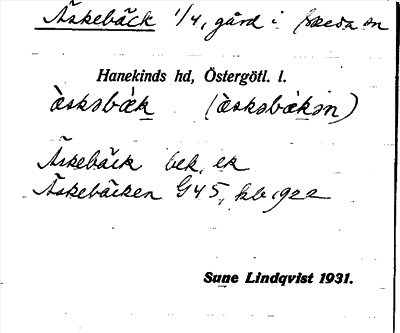 Äskebäck 1/4, gård i Skeda sn
Hanekinds hd, Östergötl. l.
æ̀skəbæ̀k (æ̀skəbæ̀kən)
Äskebäck bek. ek
Äskebäcken G45, kb 1922
Sune Lindqvist 1931.